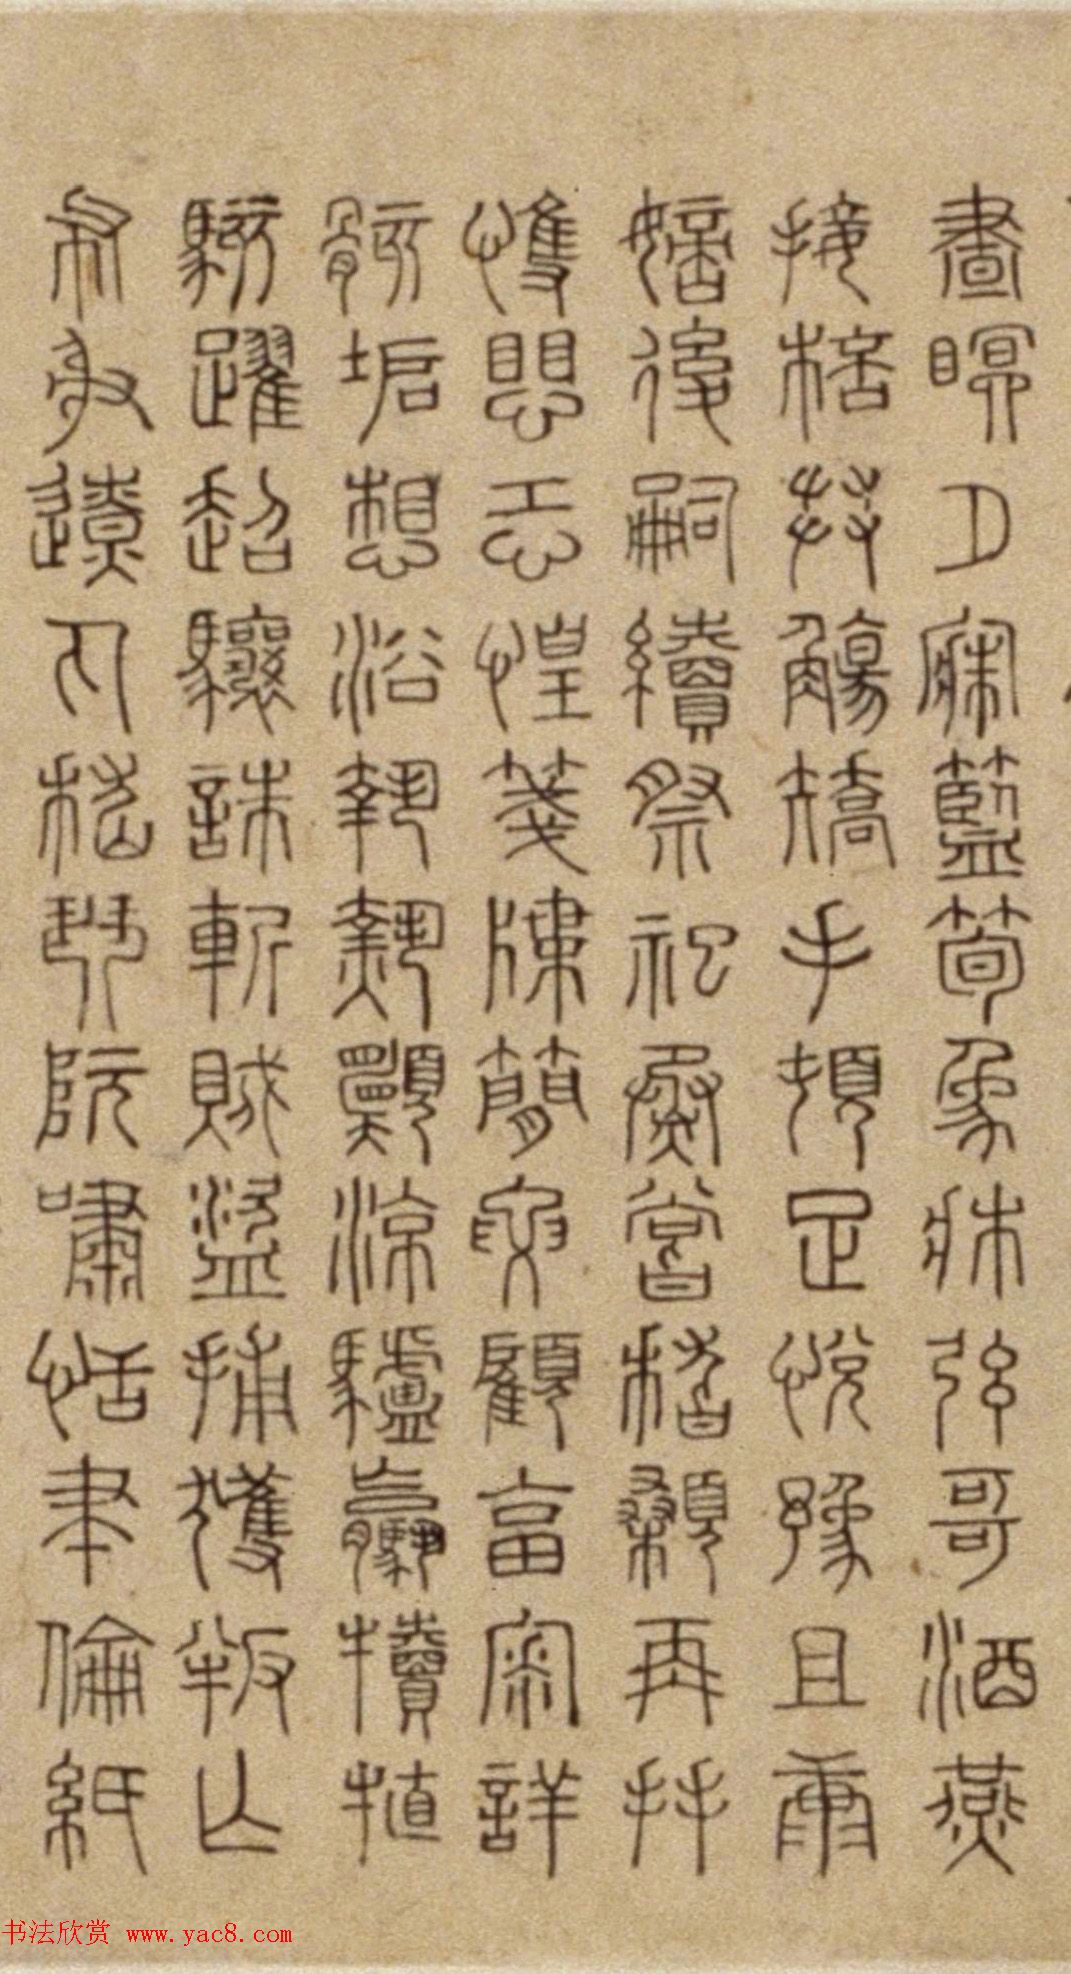 晝瞑夕寐藍筍象牀弦哥酒燕
接桮舉觴矯手頓足悅豫且康
嫡後嗣續祭祀烝嘗稽顙再拜
悚懼恐惶箋牒簡要顧畣審詳
骸垢想浴執熱願涼驢驘犢特
駭躍超驤誅斬賊盜捕獲叛亾
布射遼丸嵇琴阮嘯恬筆倫紙
书法欣赏 www.yac8.com